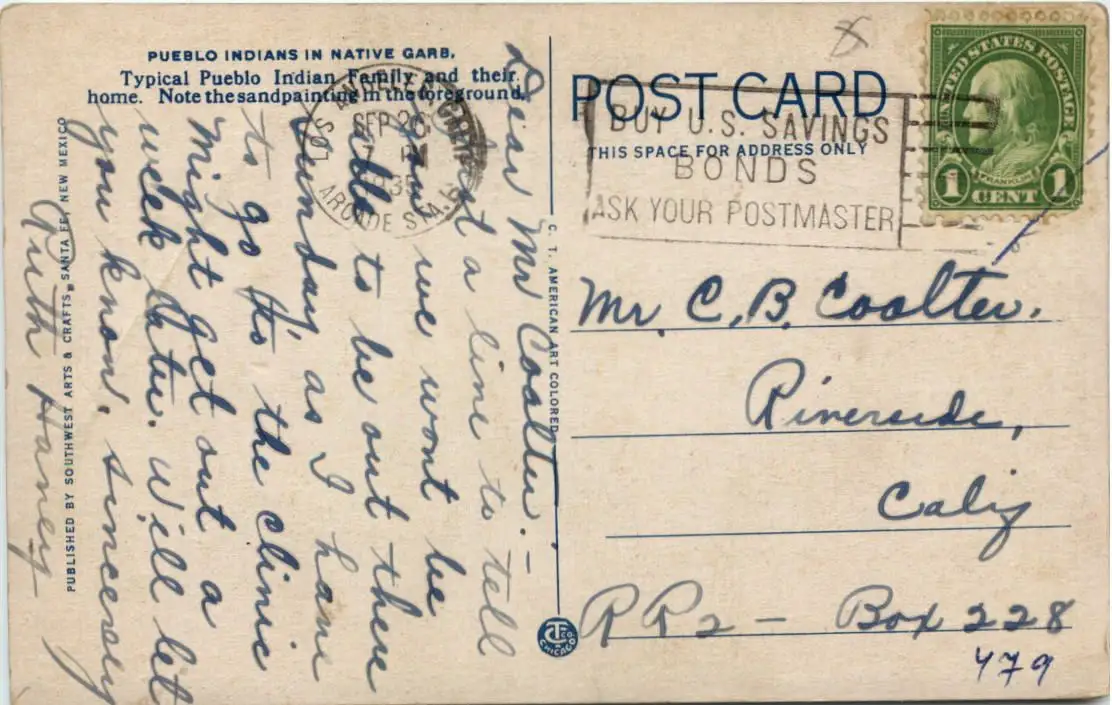 PUEBLO INDIANS IN NATIVE GARB.
Typical Pueblo Indian Family and their
home. Note the sandpainting in the foreground.
POST CARD
THIS SPACE FOR ADDRESS ONLY
UNITED STATES POSTAGE
FRANKLIN
1 CENT 1
LOS ANGELES, CALIF.
SEP 26
PM
ARCADE STA.
BUY U.S. SAVINGS
BONDS
ASK YOUR POSTMASTER
Dear Mr Coalter. –
Just a line to tell
you we wont be
able to be out there
Sunday, as I have
to go to the clinic
might get out a
week later. Will let
you know. Sincerely
Ruth Haney
Mr. C. B. Coalter.
Riverside,
Calif
R R 2 – Box 228
479
C. T. AMERICAN ART COLORED
PUBLISHED BY SOUTHWEST ARTS & CRAFTS, SANTA FE, NEW MEXICO
CT CO
CHICAGO